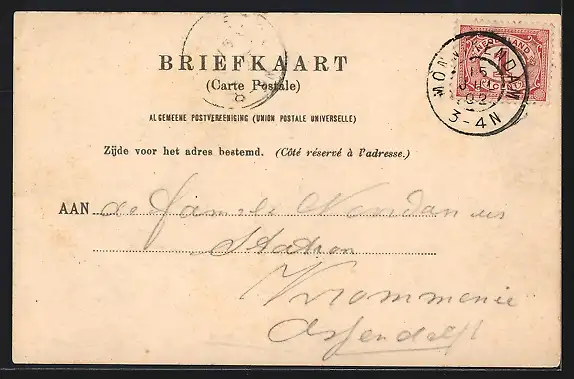 BRIEFKAART
(Carte Postale)
ALGEMEENE POSTVEREENIGING (UNION POSTALE UNIVERSELLE)
Zijde voor het adres bestemd. (Côté réservé à l'adresse.)
AAN de Familie
Station
Krommenie
Assendelft
NEDERLAND
15
02
3-4N